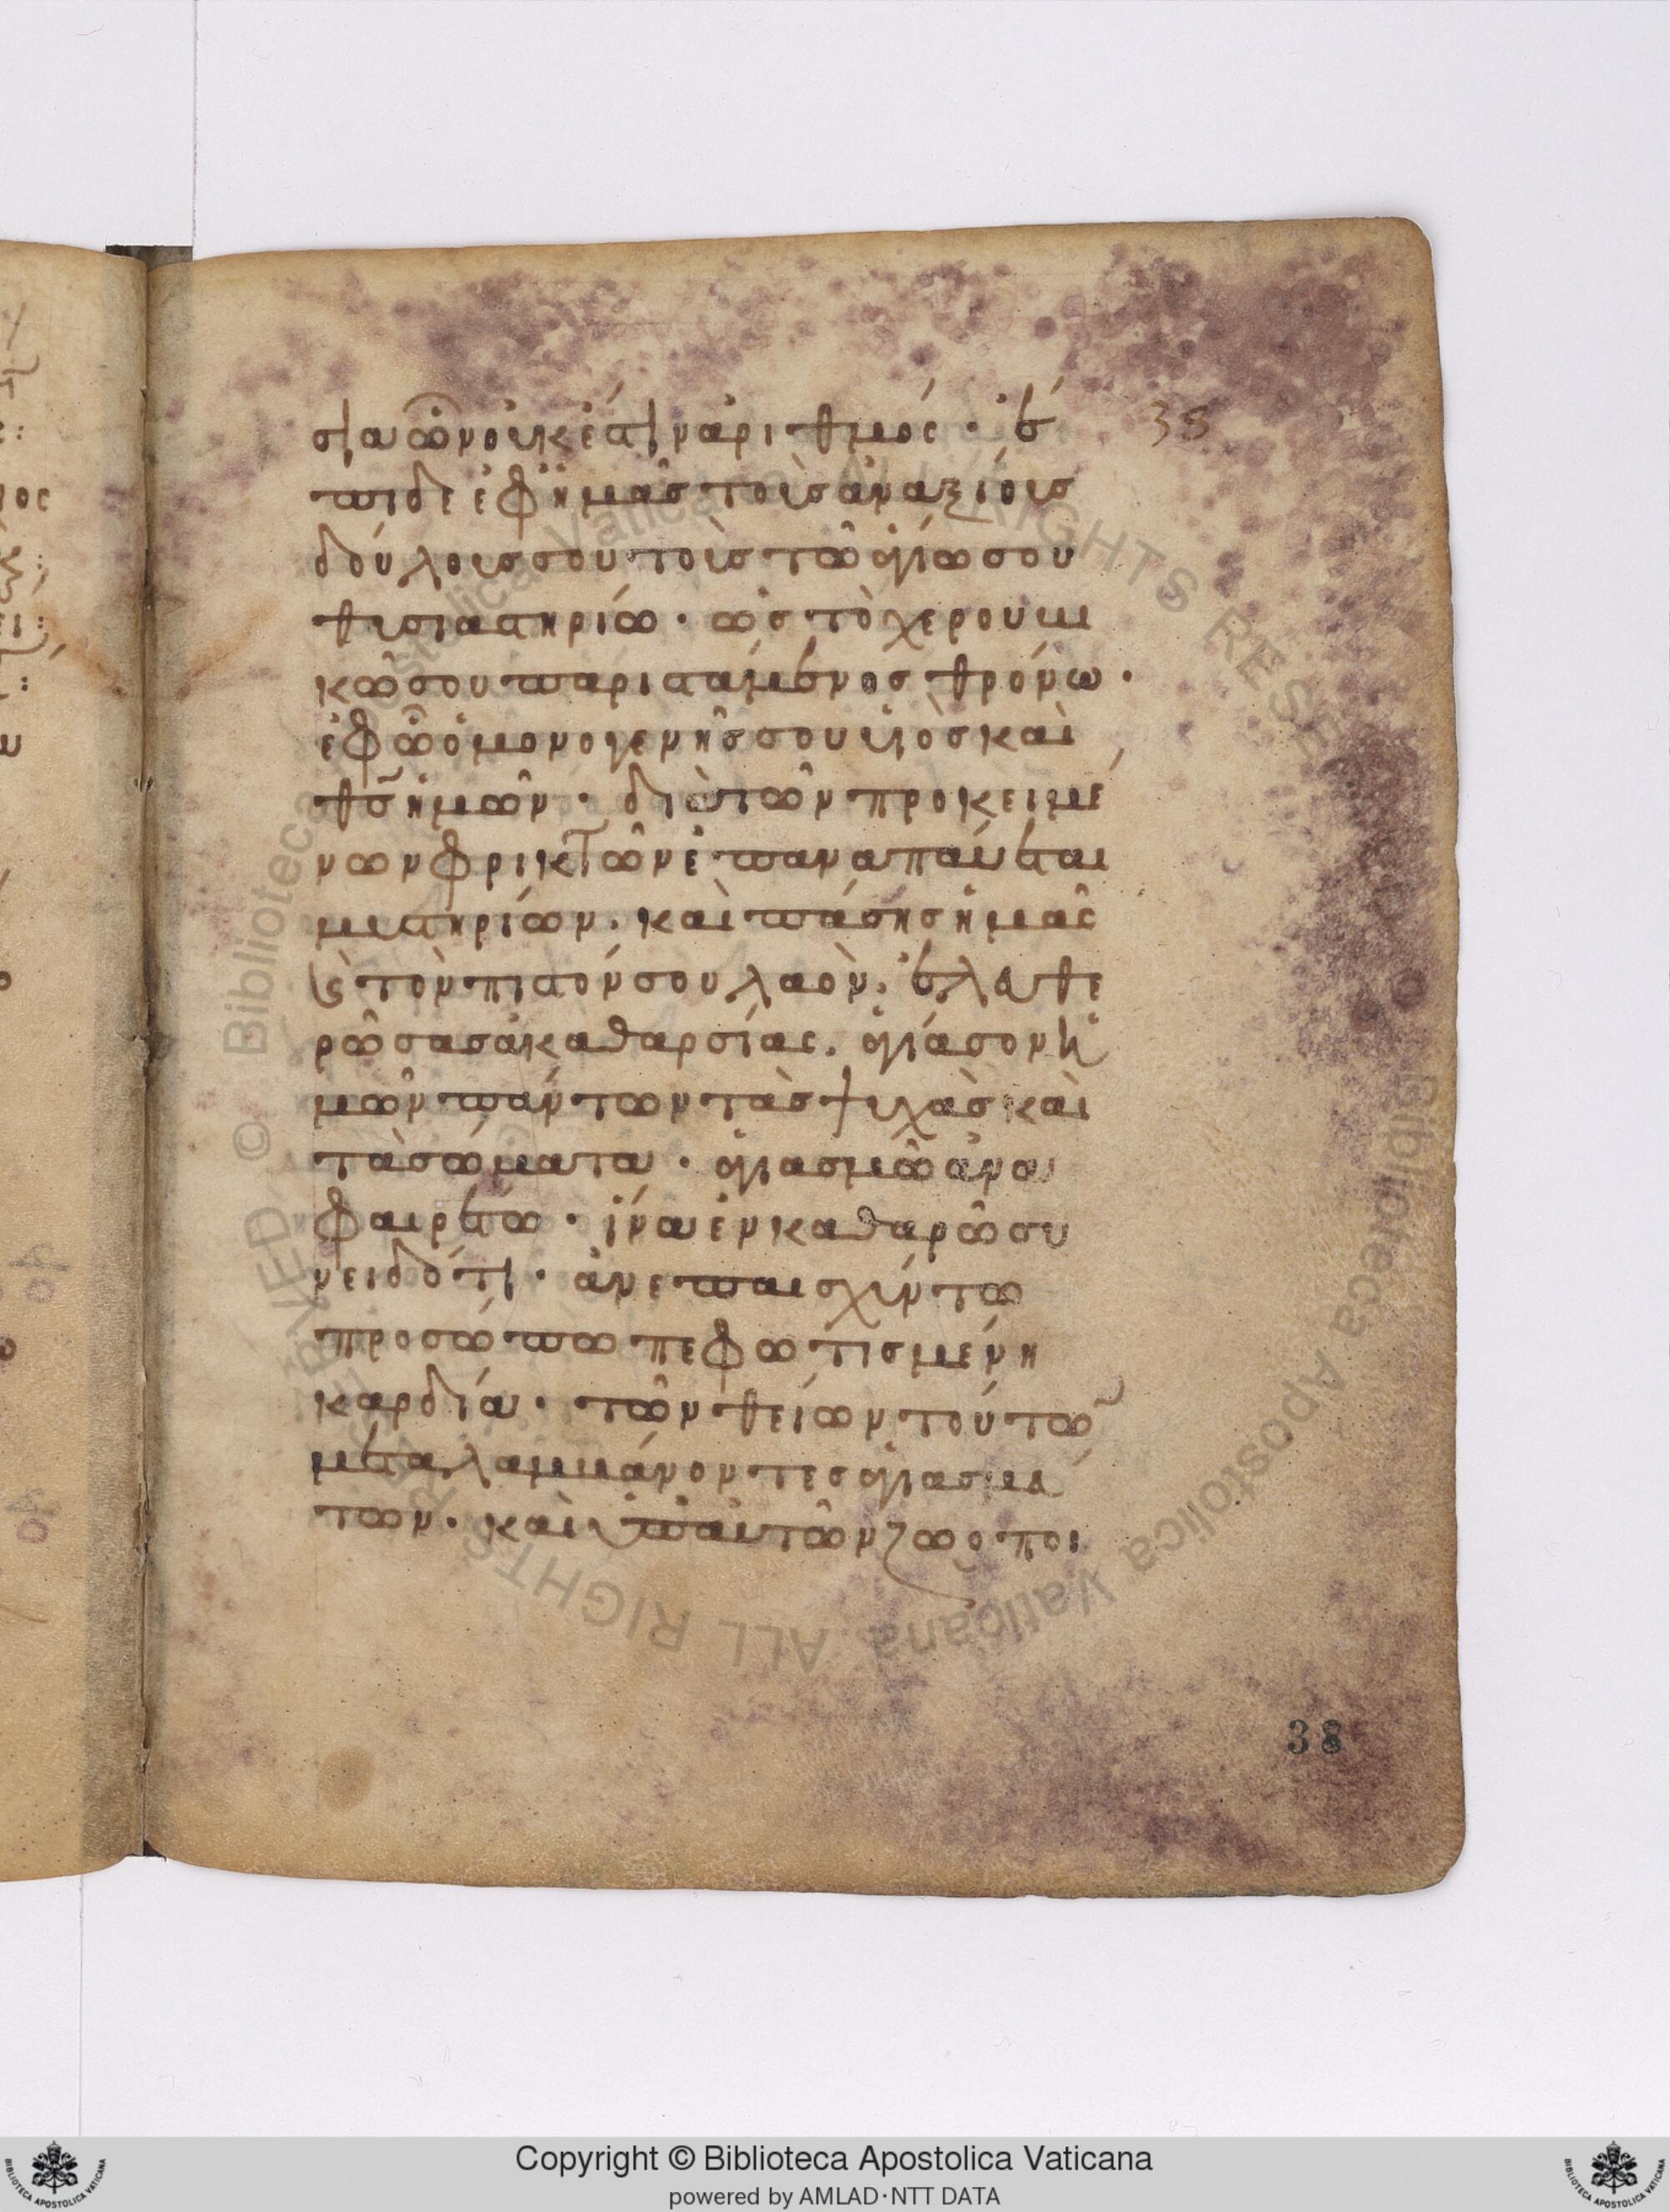 σία ὧν οὐκ ἔστιν ἀριθμός· ἔ
πιδε ἐφ ἡμᾶς τοὺς ἀναξίοις
δούλοις σου τοὺς τῶ ἁγίω σου
θυσιαστηρίω· ὡς τὸ χερουβι
κῶ σου παρισταμένος θρόνω·
ἐφ ὧ ὁ μονογενὴς σου υἱὸς καὶ
θς ἡμῶν· διὰ τῶν προκειμέ
νων φρικτῶν ἐπαναπαύεται
μυστηρίων. καὶ πάσης ἡμᾶς
καὶ τὸν πιστόν σου λαὸν. ἐλευθε
ρῶσας ἀκαθαρσίας. ἁγίασον ἡ
μῶν πάντων τὰς ψυχὰς καὶ
τὰ σώματα· ἁγιασμῶ ἀνα
φαιρέτω· ἵνα ἐν καθαρῶ συ
νειδότι· ἀνεπαισχύντω
προσώπω πεφωτισμένη
καρδία· τῶν θείων τούτων
μεταλαμβάνοντες ἁγιασμά
των. καὶ ὑπ αὐτῶν ζωοποι
38
38
Copyright © Biblioteca Apostolica Vaticana
powered by AMLAD·NTT DATA